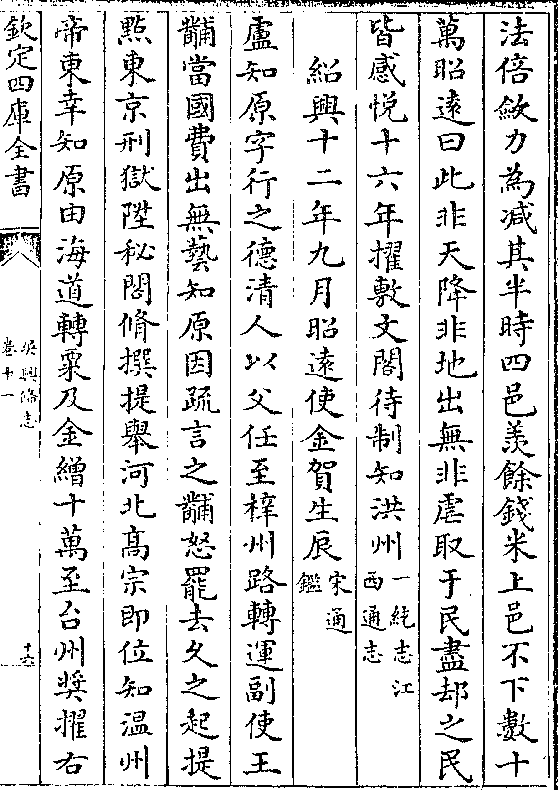 法倍斂力為减其半時四邑羨餘錢米上邑不下數十
萬昭遠曰此非天降非地出無非虐取于民盡却之民
皆感悦十六年擢敷文閣待制知洪州一統志江西通志
紹興十二年九月昭遠使金賀生辰宋通鑑
盧知原字行之德清人以父任至梓州路轉運副使王
黼當國費出無藝知原因疏言之黼怒罷去久之起提
㸃東京刑獄陞秘閣脩撰提舉河北髙宗即位知温州
帝東幸知原由海道轉粟及金繒十萬至台州奨擢右
欽定四庫全書
吳興備志
卷十一
十六